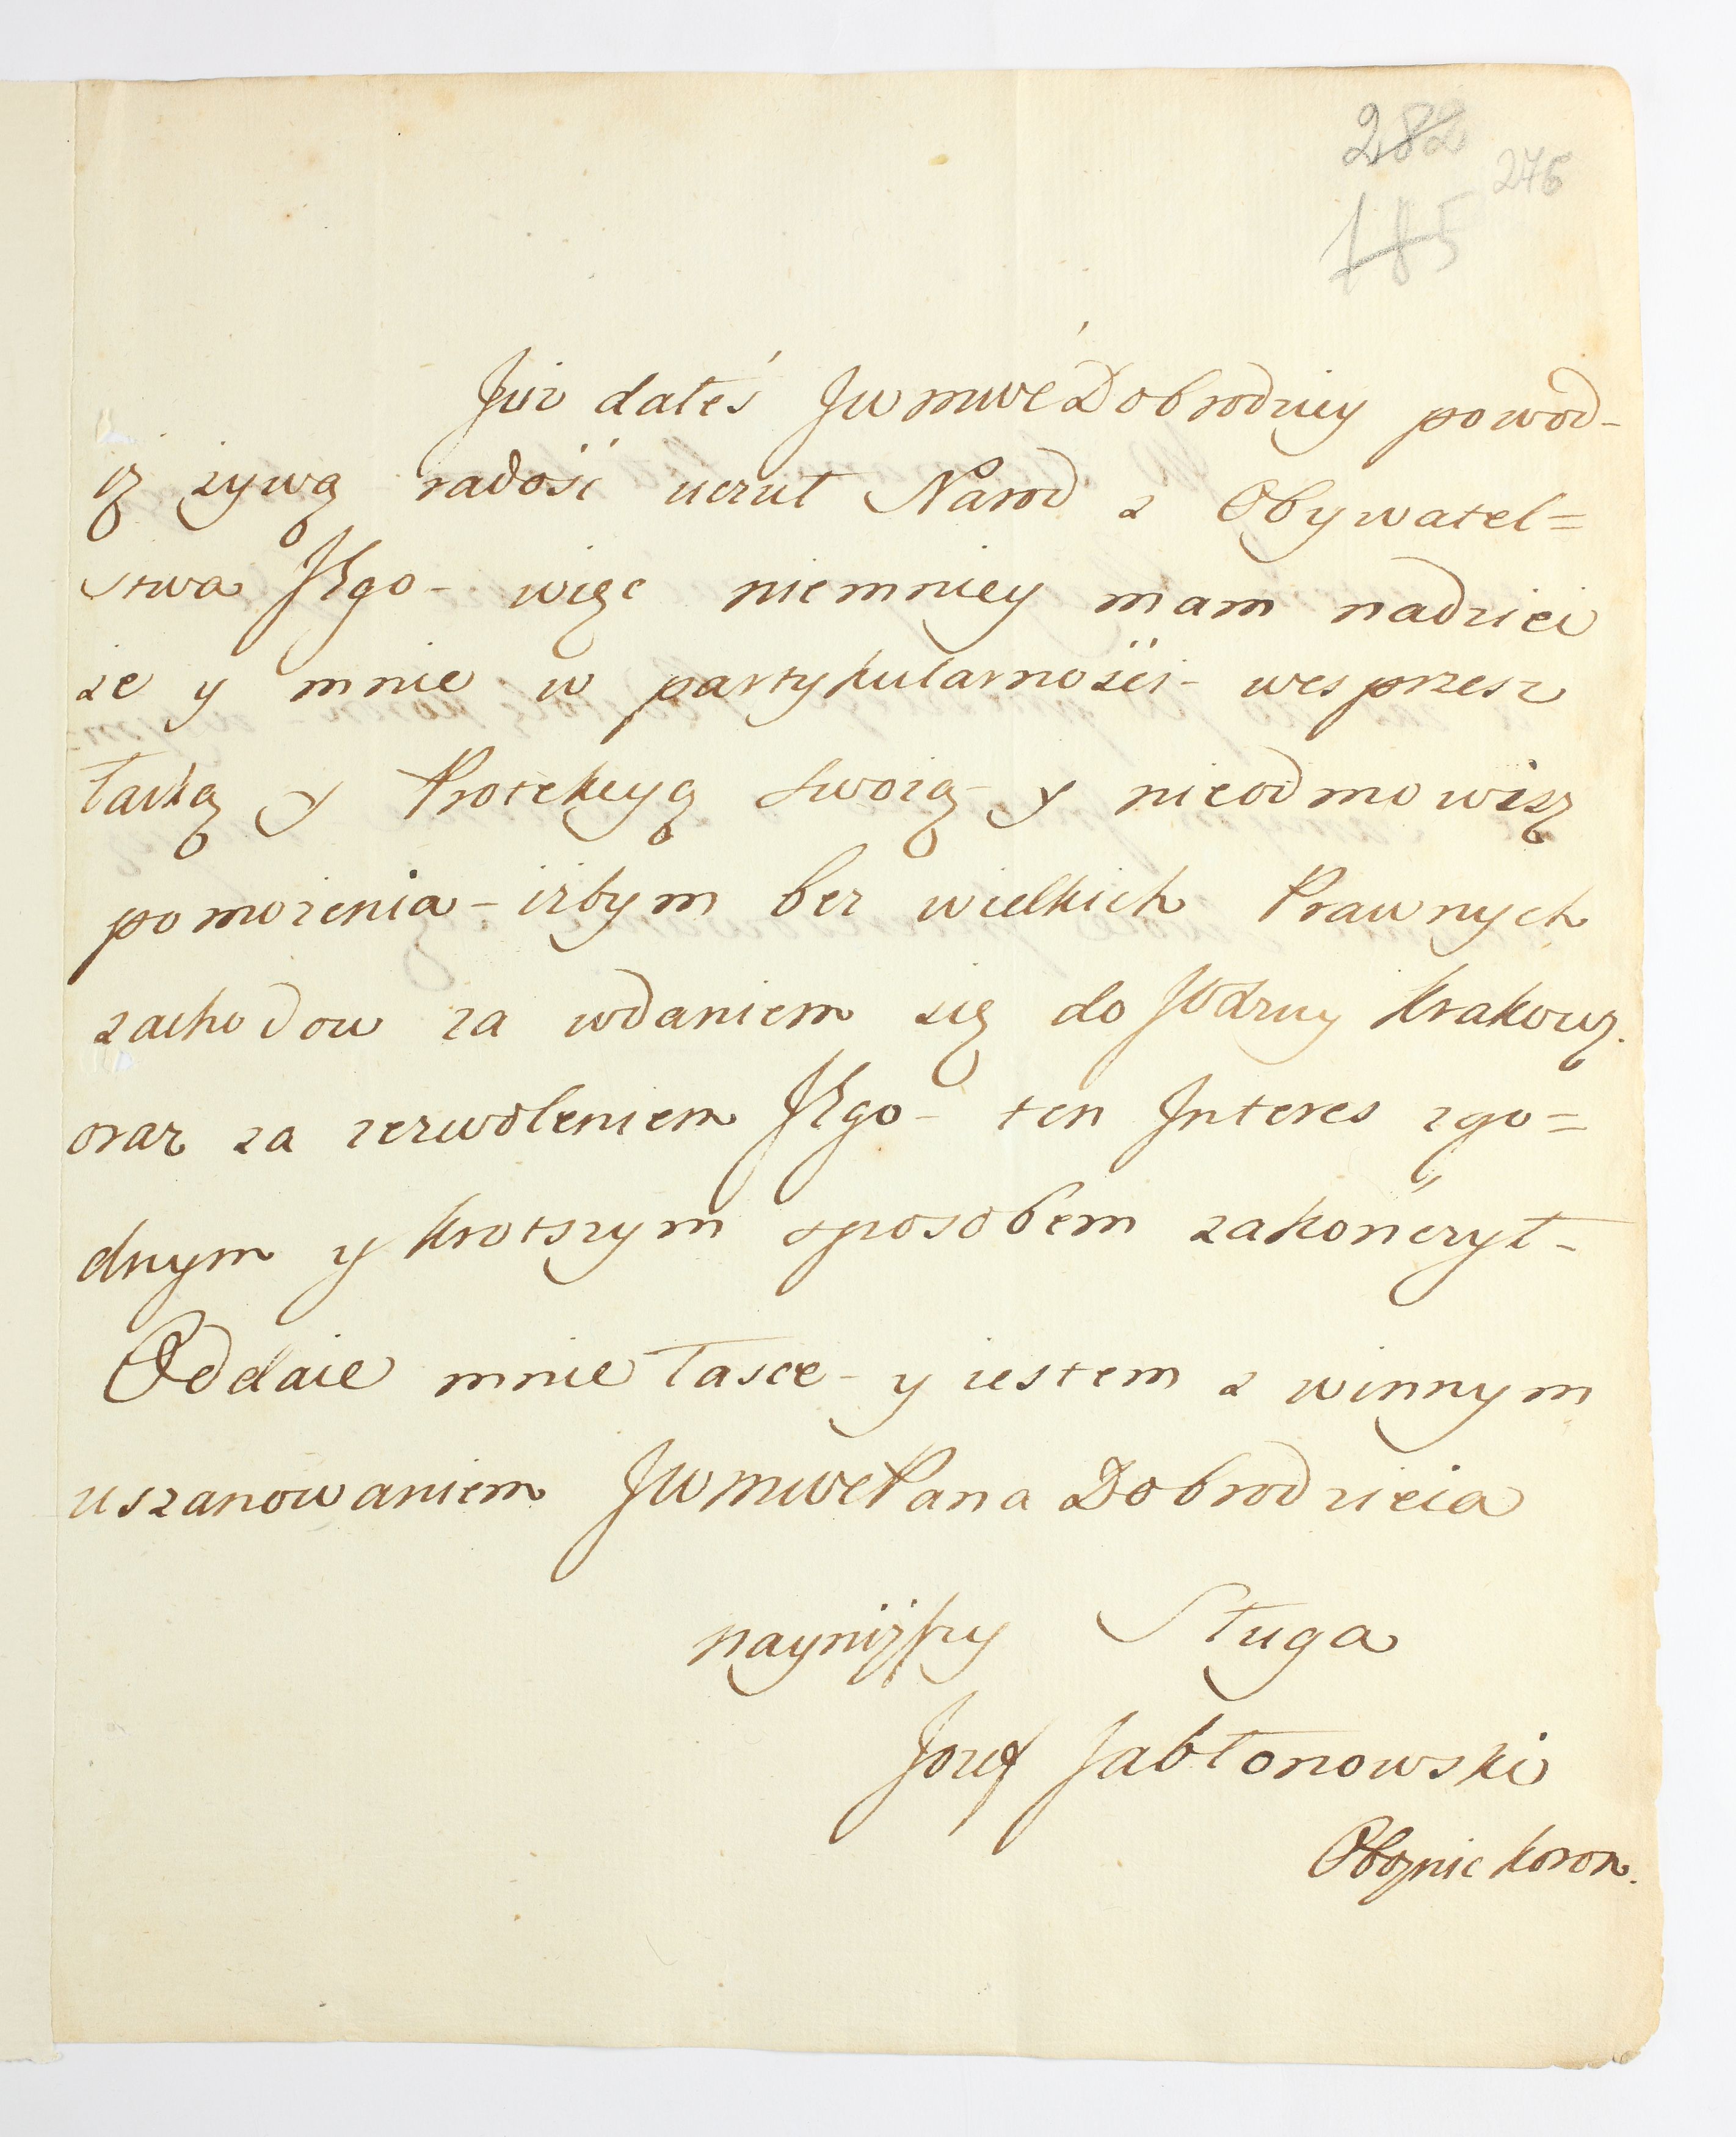 282
276
185
Juz dałeś JWmwć Dobrodziey powod-
iż żywą radość uczuł Narod z Obywatel=
stwa JEgo- więc niemniey mam nadziei
że y mnie w partykularnośći- wesprzesz
łaską y Protekcyą swoią- y nieodmowisz
pomożenia- iżbym bez wielkich Prawnych
zachodow za wdaniem się do
oraz za zezwoleniem JEgo- ten Interes zgo=
dnym y krotszym sposobem zakończył-
Oddaie mnie łasce- y iestem z winnym
uszanowaniem JWmwć Pana Dobrodzieia
nayniższy Sługa
Jozef Jabłonowski
Obożnic koron.